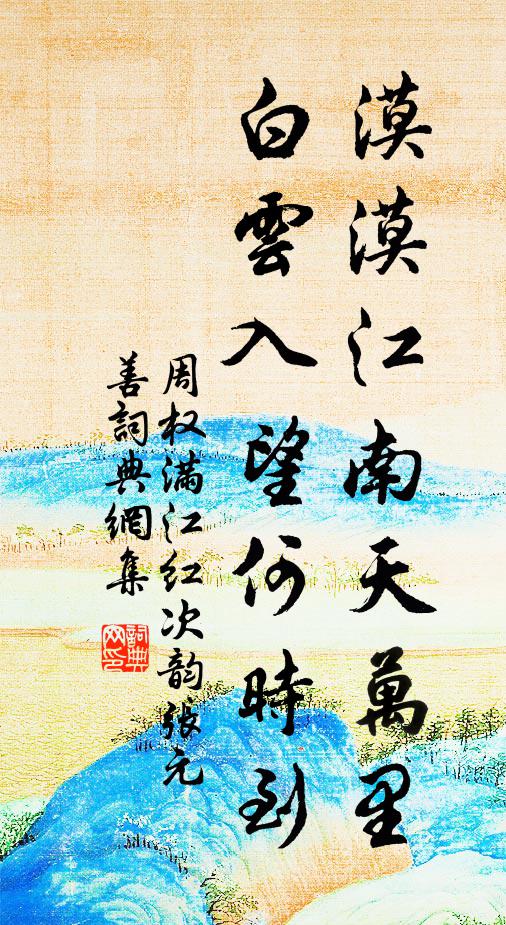 漠漠江南天萬里
白雲入望何時到
周权满江红次韵張元
善詞典網集
詞典
网印